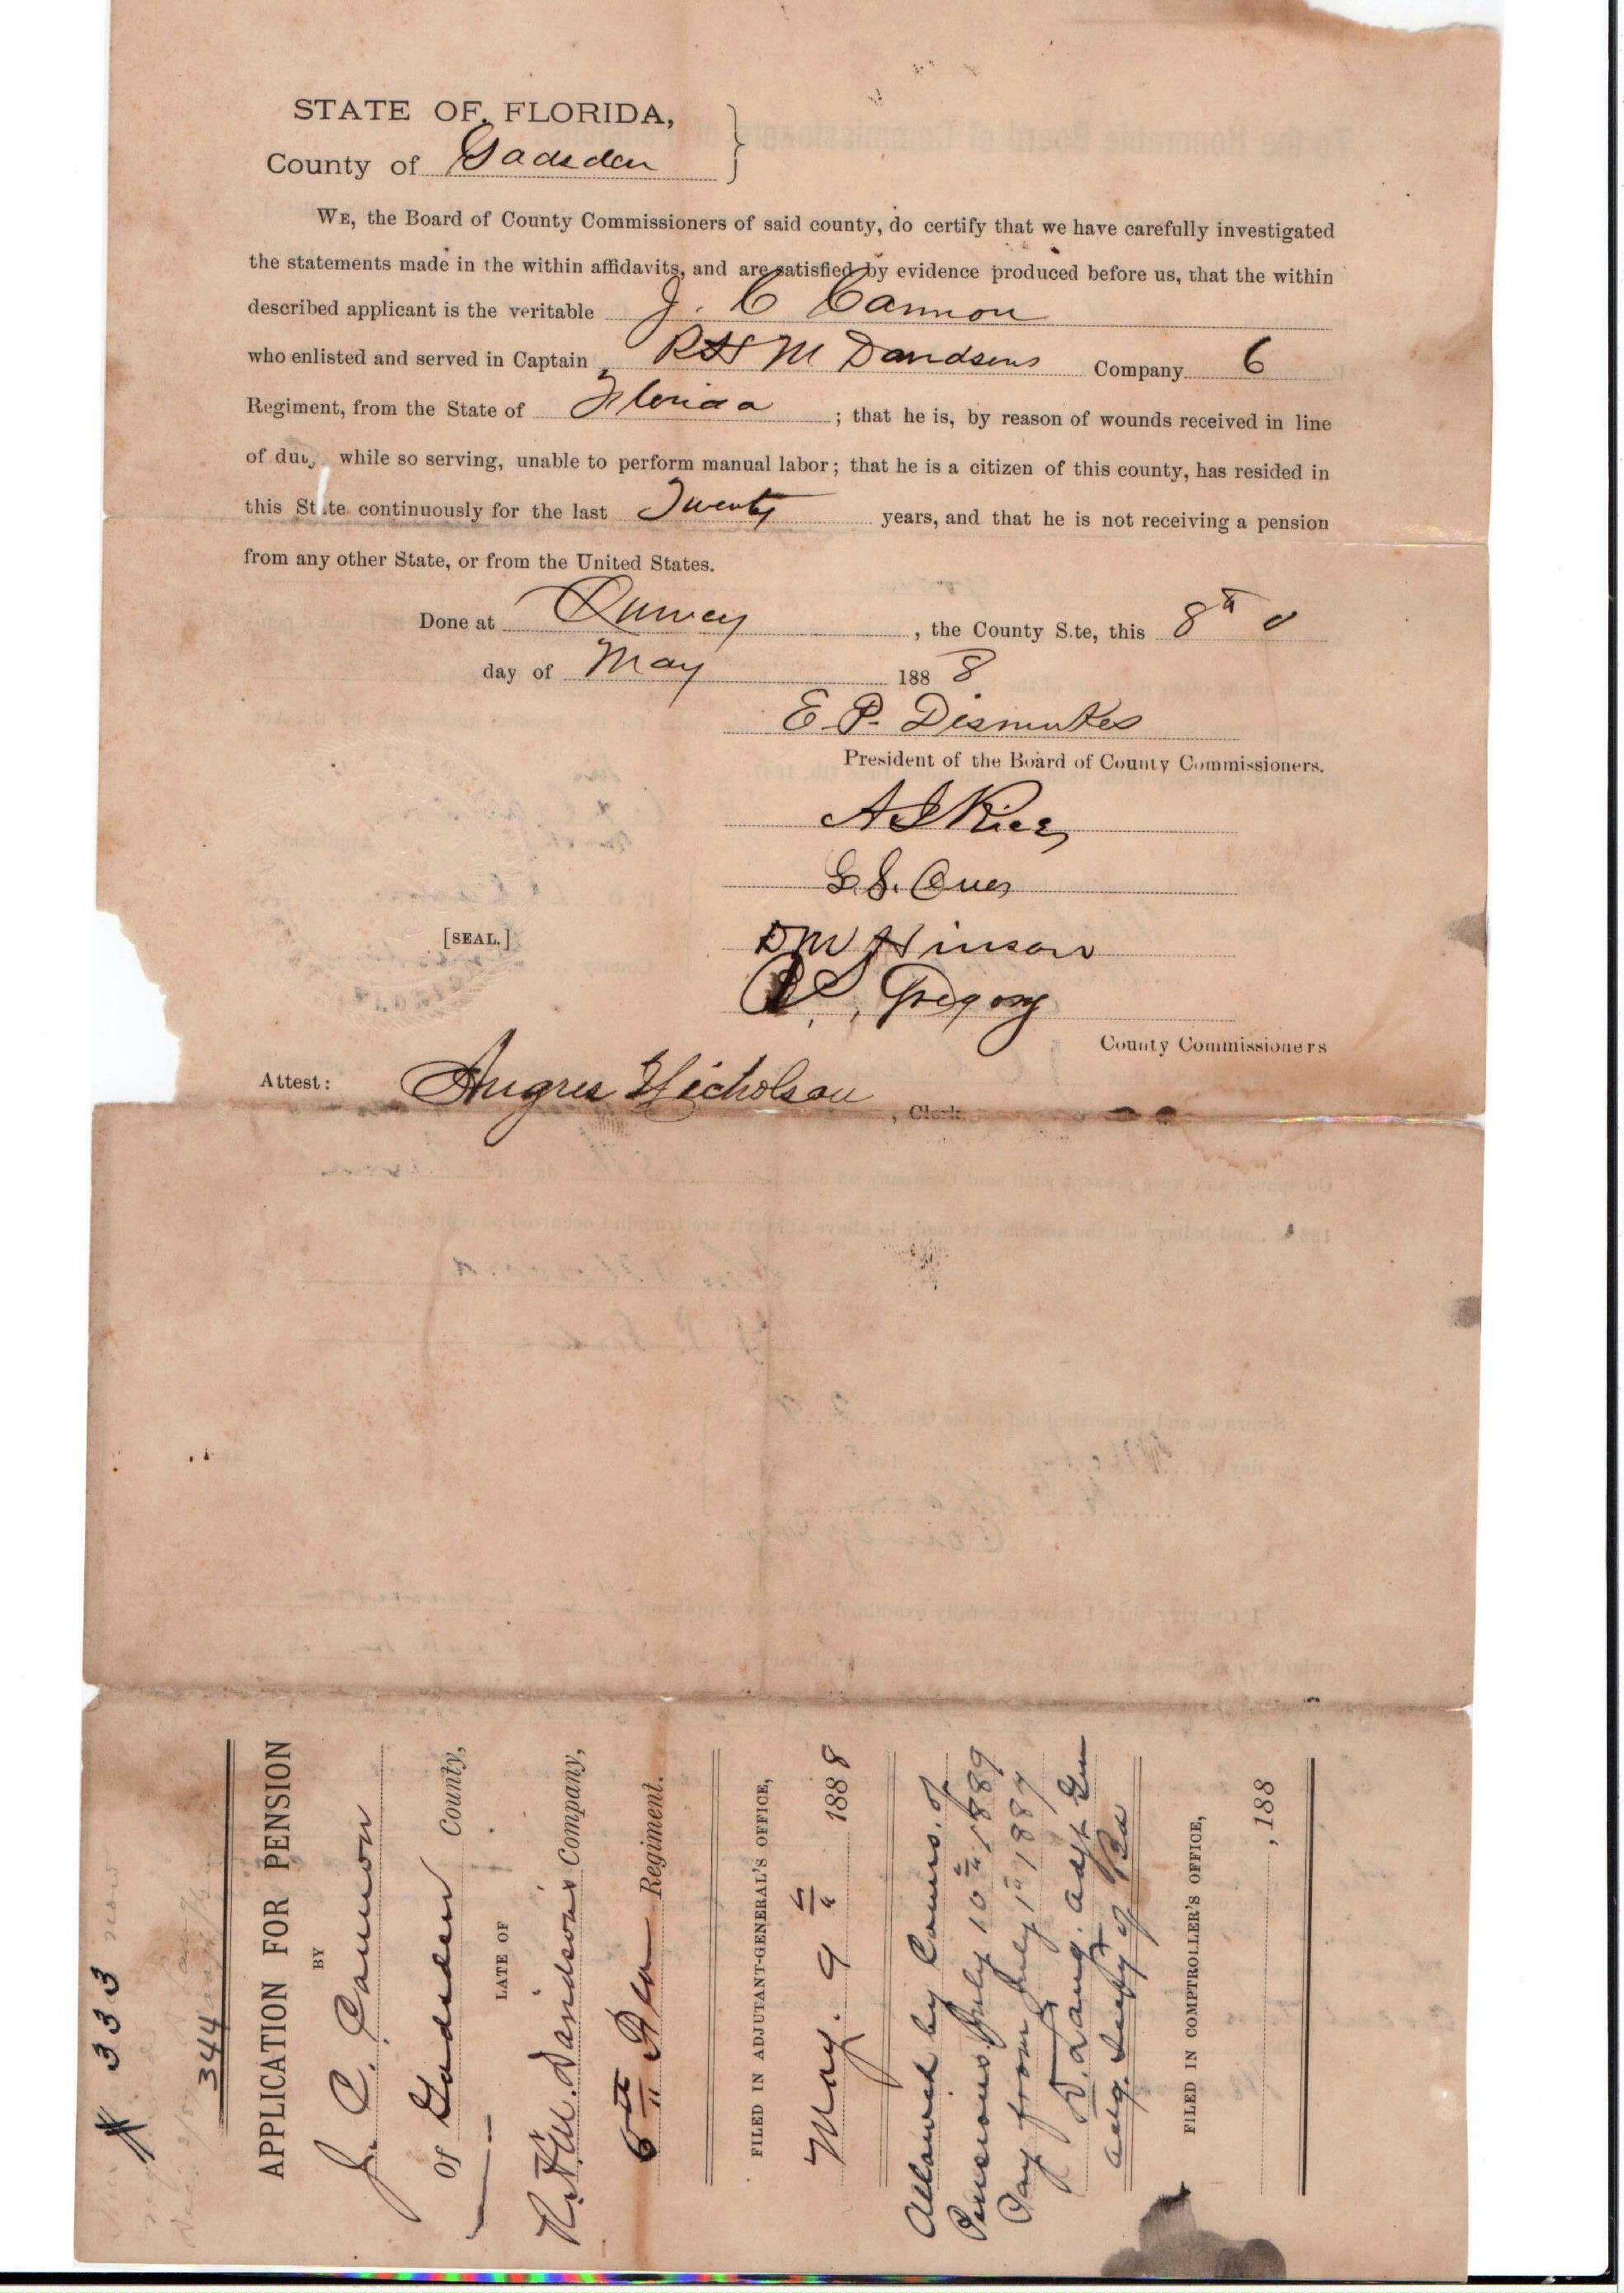 STATE OF FLORIDA,
County of Gadsden
WE, the Board of County Commissioners of said county, do certify that we have carefully investigated
the statements made in the within affidavits, and are satisfied by evidence produced before us, that the within
described applicant is the veritable J. C Cannon
who enlisted and served in Captain R H M Davidsons Company 6
Regiment, from the State of Florida ; that he is, by reason of wounds received in line
of duty while so serving, unable to perform manual labor; that he is a citizen of this county, has resided in
this State continuously for the last Twenty years, and that he is not receiving a pension
from any other State, or from the United States.
Done at Quincy , the County S.te, this 8th
day of May 188 8
E. P. Dismukes
President of the Board of County Commissioners.
A I Rice
G. S.
[SEAL.] D M Hinson
Gregory
County Commissioners
Attest: Angus Nicholson , Clerk
333
344
APPLICATION FOR PENSION
BY
J. C. Cannon
Of Gadsden County,
LATE OF
R. H. M. Davidson's Company,
6th Fla Regiment.
FILED IN ADJUTANT-GENERAL'S OFFICE,
May. 9th 1888
Allowed by Comrs. of
Pensions, July 10th 1889
Pay from July 1st 1887
D. Lang. Adjt Gen
actg. Secty of Bd
FILED IN COMPTROLLER'S OFFICE,
, 188